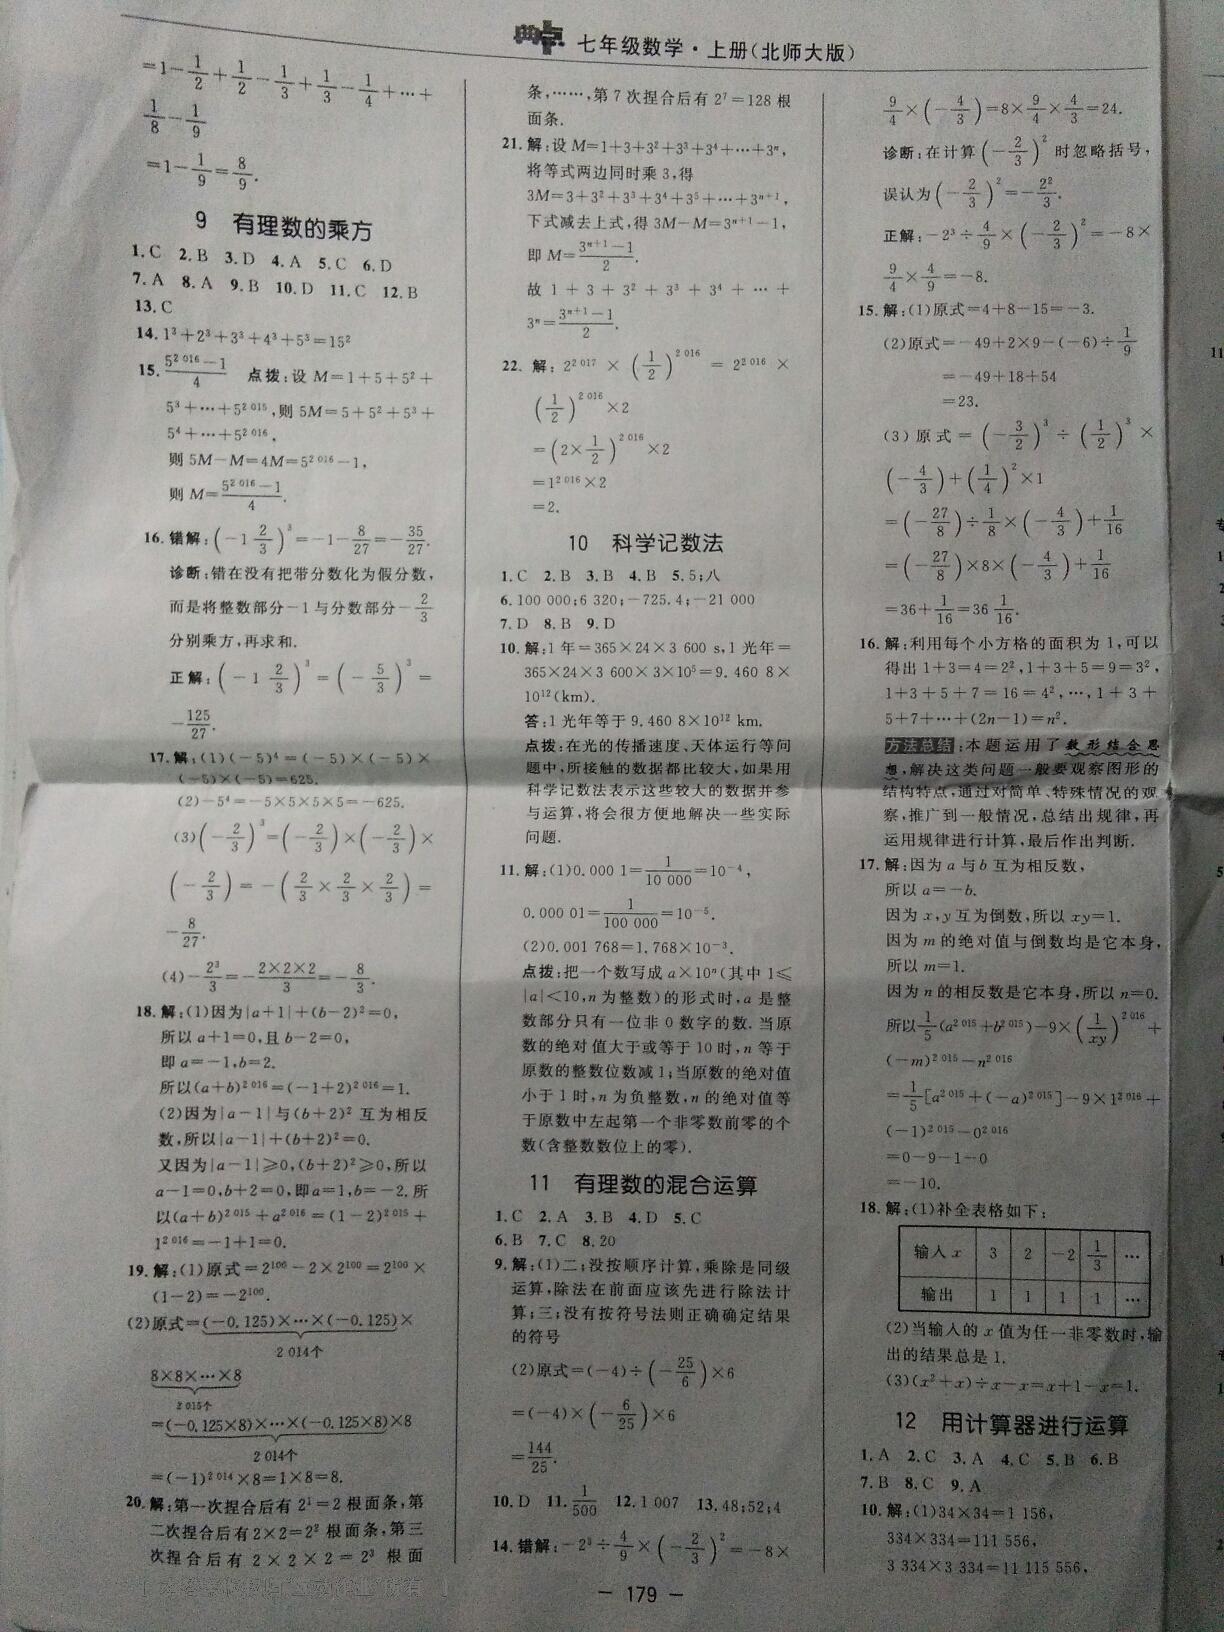 典点 七年级数学·上册(北师大版)
=1-1/2+1/2-1/3+1/3-1/4+…+
1/8-1/9
=1-1/9=8/9.
9 有理数的乘方
1.C 2.B 3.D 4.A 5.C 6.D
7.A 8.A 9.B 10.D 11.C 12.B
13.C
14.1³+2³+3³+4³+5³=15²
15.(5²⁰¹⁶-1)/4 点拨:设 M=1+5+5²+
5³+…+5²⁰¹⁵,则 5M=5+5²+5³+
5⁴+…+5²⁰¹⁶,
则 5M-M=4M=5²⁰¹⁶-1,
则 M=(5²⁰¹⁶-1)/4.
16.错解:(-1 2/3)³=-1-8/27=-35/27.
诊断:错在没有把带分数化为假分数,
而是将整数部分-1与分数部分-2/3
分别乘方,再求和.
正解:(-1 2/3)³=(-5/3)³=
-125/27.
17.解:(1)(-5)⁴=(-5)×(-5)×
(-5)×(-5)=625.
(2)-5⁴=-5×5×5×5=-625.
(3)(-2/3)³=(-2/3)×(-2/3)×
(-2/3)=-(2/3×2/3×2/3)=
-8/27.
(4)-2³/3=-(2×2×2)/3=-8/3.
18.解:(1)因为|a+1|+(b-2)²=0,
所以 a+1=0,且 b-2=0,
即 a=-1,b=2.
所以(a+b)²⁰¹⁶=(-1+2)²⁰¹⁶=1.
(2)因为|a-1|与(b+2)²互为相反
数,所以|a-1|+(b+2)²=0.
又因为|a-1|≥0,(b+2)²≥0,所以
a-1=0,b+2=0,即a=1,b=-2.所
以(a+b)²⁰¹⁵+a²⁰¹⁶=(1-2)²⁰¹⁵+
1²⁰¹⁶=-1+1=0.
19.解:(1)原式=2¹⁰⁰-2×2¹⁰⁰=2¹⁰⁰×
(1-2)=-2¹⁰⁰.
(2)原式=(-0.125)×…×(-0.125)×
2 014个
8×8×…×8
2 015个
=(-0.125×8)×…×(-0.125×8)×8
2 014个
=(-1)²⁰¹⁴×8=1×8=8.
20.解:第一次捏合后有2¹=2根面条,第
二次捏合后有2×2=2²根面条,第三
次捏合后有2×2×2=2³根面
条,……,第7次捏合后有2⁷=128根
面条.
21.解:设 M=1+3+3²+3³+3⁴+…+3ⁿ,
将等式两边同时乘3,得
3M=3+3²+3³+3⁴+3⁵+…+3ⁿ⁺¹,
下式减去上式,得3M-M=3ⁿ⁺¹-1,
即 M=(3ⁿ⁺¹-1)/2.
故 1+3+3²+3³+3⁴+…+
3ⁿ=(3ⁿ⁺¹-1)/2.
22.解:2²⁰¹⁷×(1/2)²⁰¹⁶=2²⁰¹⁶×
(1/2)²⁰¹⁶×2
=(2×1/2)²⁰¹⁶×2
=1²⁰¹⁶×2
=2.
10 科学记数法
1.C 2.B 3.B 4.B 5.5;八
6.100 000;6 320;-725.4;-21 000
7.D 8.B 9.D
10.解:1年=365×24×3 600 s,1光年=
365×24×3 600×3×10⁵=9.460 8×
10¹²(km).
答:1光年等于9.460 8×10¹² km.
点拨:在光的传播速度、天体运行等问
题中,所接触的数据都比较大,如果用
科学记数法表示这些较大的数据并参
与运算,将会很方便地解决一些实际
问题.
11.解:(1)0.000 1=1/10 000=10⁻⁴,
0.000 01=1/100 000=10⁻⁵.
(2)0.001 768=1.768×10⁻³.
点拨:把一个数写成a×10ⁿ(其中1≤
|a|<10,n为整数)的形式时,a是整
数部分只有一位非0数字的数.当原
数的绝对值大于或等于10时,n等于
原数的整数位数减1;当原数的绝对值
小于1时,n为负整数,n的绝对值等
于原数中左起第一个非零数前零的个
数(含整数数位上的零).
11 有理数的混合运算
1.C 2.A 3.B 4.D 5.C
6.B 7.C 8.20
9.解:(1)二;没按顺序计算,乘除是同级
运算,除法在前面应该先进行除法计
算;三;没有按符号法则正确确定结果
的符号
(2)原式=(-4)÷(-25/6)×6
=(-4)×(-6/25)×6
=144/25.
10.D 11.1/500 12.1 007 13.48;52;4
14.错解:-2³÷4/9×(-2/3)²=-8×
9/4×(-4/3)=8×9/4×4/3=24.
诊断:在计算(-2/3)²时忽略括号,
误认为(-2/3)²=-2²/3.
正解:-2³÷4/9×(-2/3)²=-8×
9/4×4/9=-8.
15.解:(1)原式=4+8-15=-3.
(2)原式=-49+2×9-(-6)÷1/9
=-49+18+54
=23.
(3)原式=(-3/2)³÷(1/2)³×
(-4/3)+(1/4)²×1
=(-27/8)÷1/8×(-4/3)+1/16
=(-27/8)×8×(-4/3)+1/16
=36+1/16=36 1/16.
16.解:利用每个小方格的面积为1,可以
得出1+3=4=2²,1+3+5=9=3²,
1+3+5+7=16=4²,…,1+3+
5+7+…+(2n-1)=n².
方法总结:本题运用了数形结合思
想,解决这类问题一般要观察图形的
结构特点,通过对简单、特殊情况的观
察,推广到一般情况,总结出规律,再
运用规律进行计算,最后作出判断.
17.解:因为a与b互为相反数,
所以a=-b.
因为x,y互为倒数,所以xy=1.
因为m的绝对值与倒数均是它本身,
所以m=1.
因为n的相反数是它本身,所以n=0.
所以1/5(a²⁰¹⁵+b²⁰¹⁵)-9×(1/xy)²⁰¹⁶+
(-m)²⁰¹⁵-n²⁰¹⁶
=1/5[a²⁰¹⁵+(-a)²⁰¹⁵]-9×1²⁰¹⁶+
(-1)²⁰¹⁵-0²⁰¹⁶
=0-9-1-0
=-10.
18.解:(1)补全表格如下:
输入x 3 2 -2 1/3 …
输出 1 1 1 1 …
(2)当输入的x值为任一非零数时,输
出的结果总是1.
(3)(x²+x)÷x-x=x+1-x=1.
12 用计算器进行运算
1.A 2.C 3.A 4.C 5.B 6.B
7.B 8.C 9.A
10.解:(1)34×34=1 156,
334×334=111 556,
3 334×3 334=11 115 556,
— 179 —